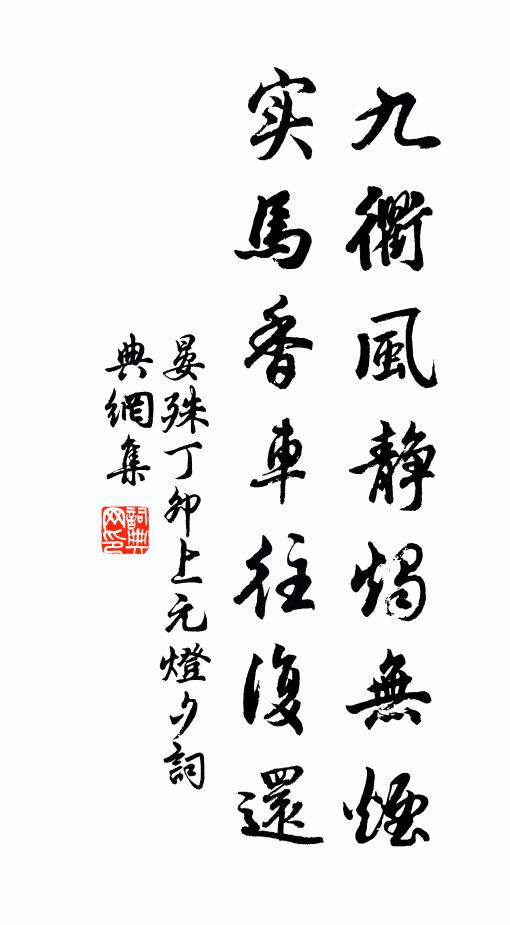 九衢風静燭無煙
实馬香車往復還
晏殊丁卯上元燈夕詞
典網集
詞典
网印